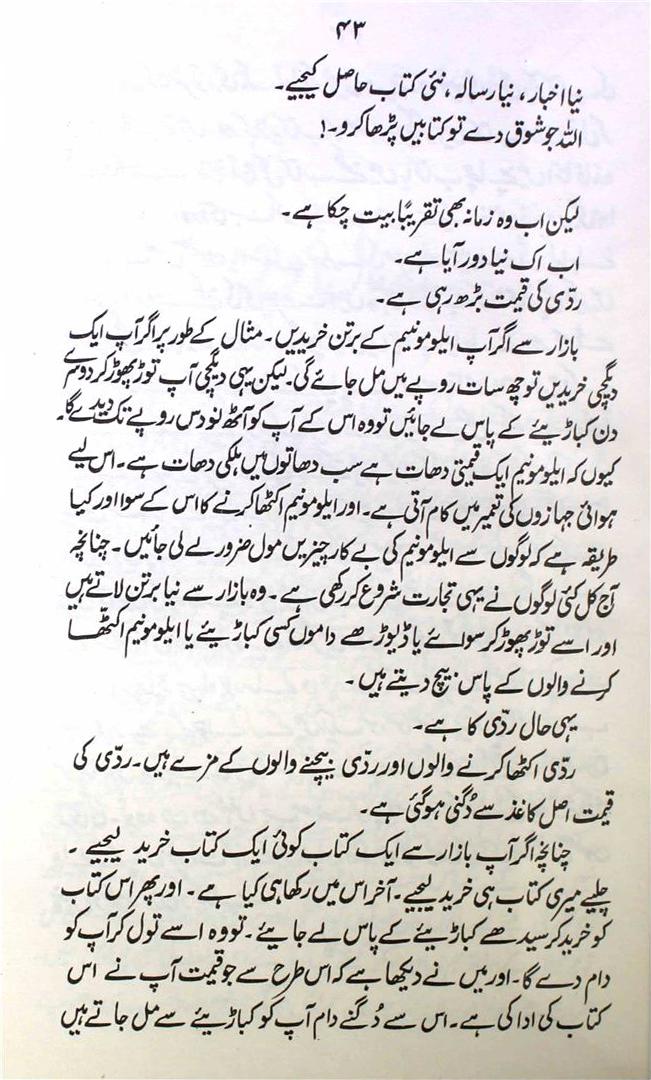 ۴۳
نیا اخبار، نیا رسالہ، نئی کتاب حاصل کیجیے۔
اللہ جو شوق دے تو کتابیں پڑھا کرو۔!
لیکن اب وہ زمانہ بھی تقریباً بیت چکا ہے۔
اب اک نیا دور آیا ہے۔
ردّی کی قیمت بڑھ رہی ہے۔
بازار سے اگر آپ ایلومونیم کے برتن خریدیں۔ مثال کے طور پر اگر آپ ایک
دیگچی خریدیں تو چھ سات روپے میں مل جائے گی۔ لیکن یہی دیگچی آپ توڑ پھوڑ کر دوسرے
دن کباڑیئے کے پاس لے جائیں تو وہ اس کے آپ کو آٹھ نو دس روپے تک دیدے گا۔
کیوں کہ ایلومونیم ایک قیمتی دھات ہے سب دھاتوں میں ہلکی دھات ہے۔ اس لیے
ہوائی جہازوں کی تعمیر میں کام آتی ہے۔ اور ایلومونیم اکٹھا کرنے کا اس کے سوا اور کیا
طریقہ ہے کہ لوگوں سے ایلومونیم کی بے کار چیزیں مول ضرور لے لی جائیں۔ چنانچہ
آج کل کئی لوگوں نے یہی تجارت شروع کر رکھی ہے۔ وہ بازار سے نیا برتن لاتے ہیں
اور اسے توڑ پھوڑ کر سوائے یا ڈیوڑھے داموں کسی کباڑیئے یا ایلومونیم اکٹّھا
کرنے والوں کے پاس بیچ دیتے ہیں۔
یہی حال ردّی کا ہے۔
ردّی اکٹھا کرنے والوں اور ردّی بیچنے والوں کے مزے ہیں۔ ردّی کی
قیمت اصل کاغذ سے دُگنی ہو گئی ہے۔
چنانچہ اگر آپ بازار سے ایک کتاب کوئی ایک کتاب خرید لیجیے۔
چلیے میری کتاب ہی خرید لیجیے۔ آخر اس میں رکھا ہی کیا ہے۔ اور پھر اس کتاب
کو خرید کر سیدھے کباڑیئے کے پاس لے جایئے۔ تو وہ اسے تول کر آپ کو
دام دے گا۔ اور میں نے دیکھا ہے کہ اس طرح سے جو قیمت آپ نے اس
کتاب کی ادا کی ہے۔ اس سے دُگنے دام آپ کو کباڑیئے سے مل جاتے ہیں